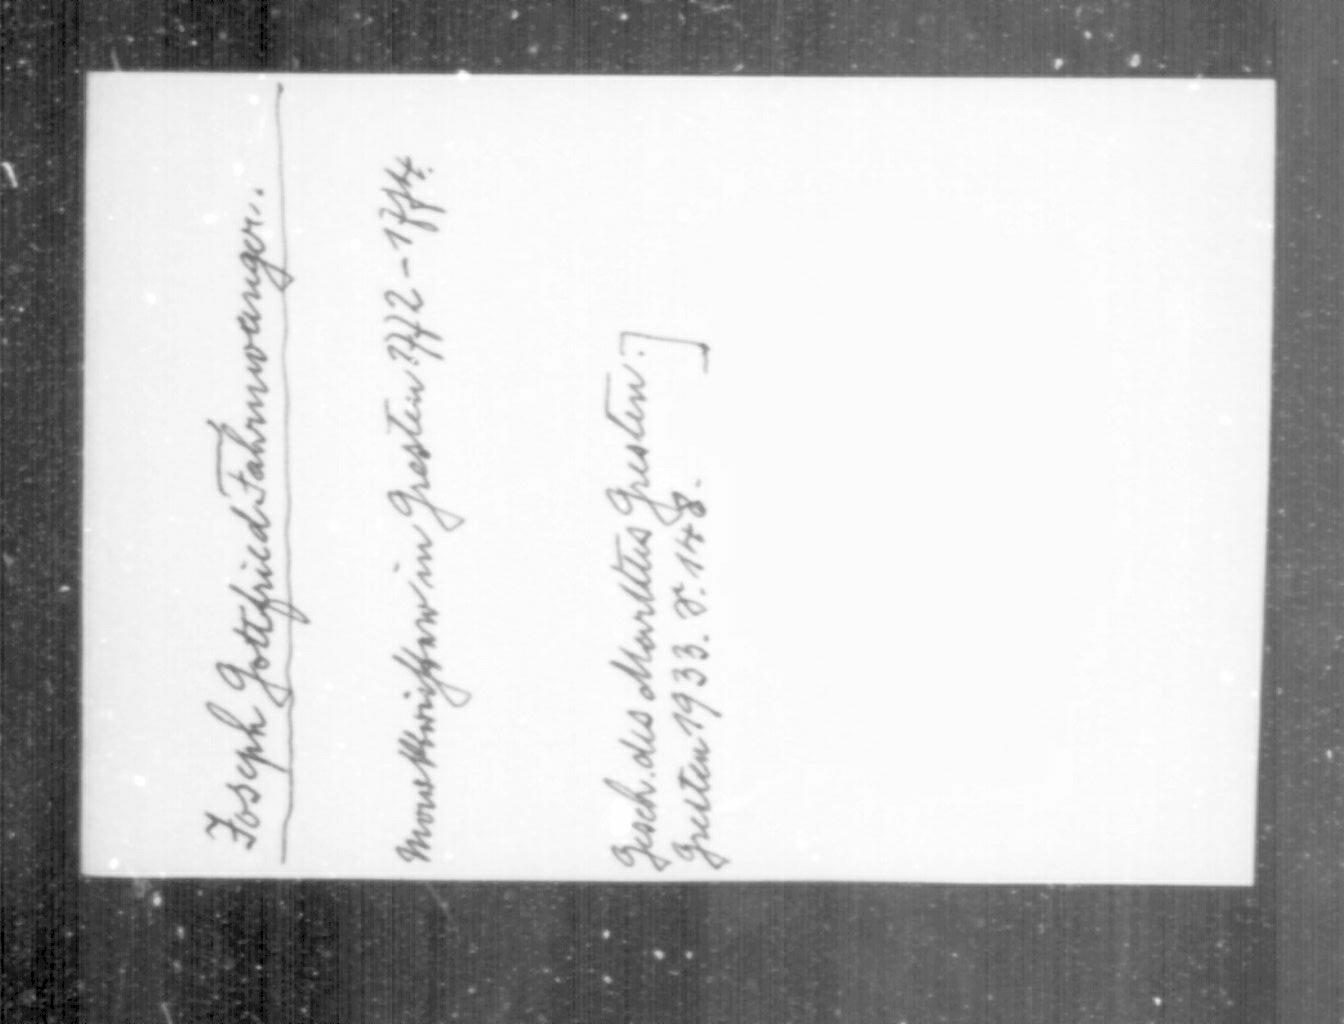 Joseph Gottfried Fahrnwanger.
Marktrichter in Gresten 1772-1774.
Gesch. des Marktes Gresten.]
Gresten 1933. S. 148.